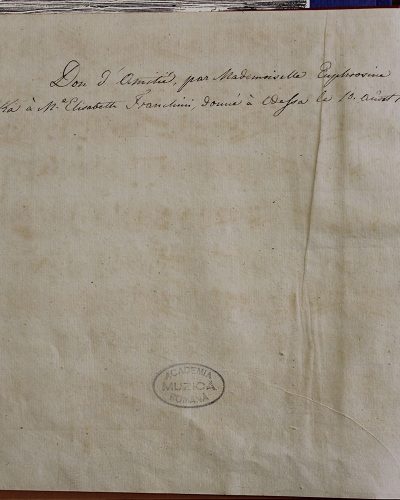 Don d'Amitié, par Mademoiselle Euphrosine
Ka à M.e Elisabeth Franchini, donné à Odessa le 13. août
ACADEMIA
MUZICĂ
ROMÂNĂ